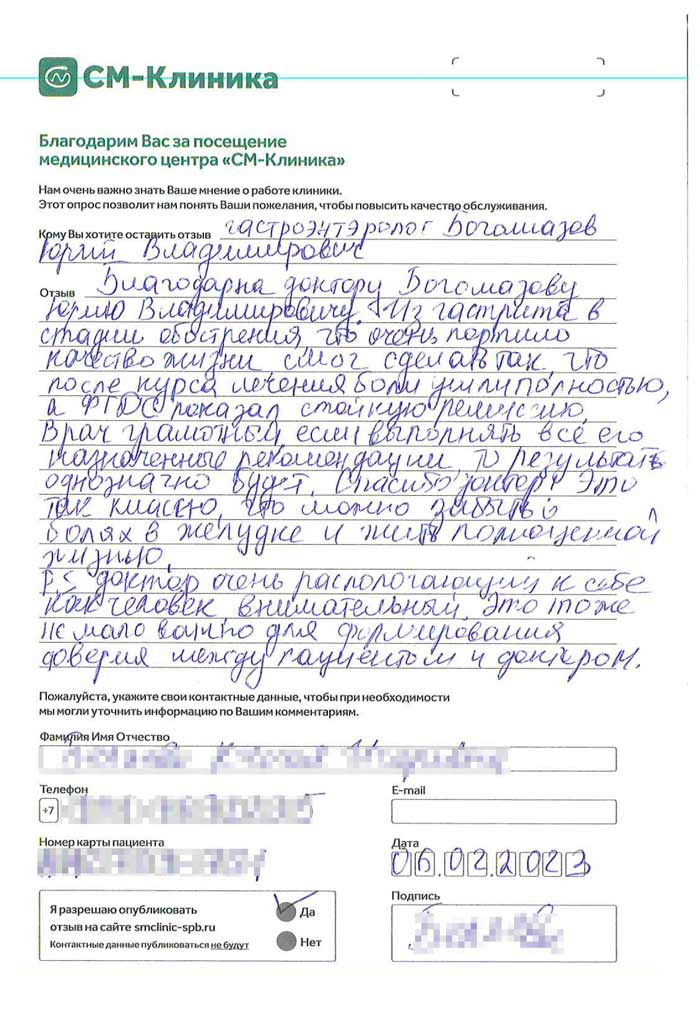 СМ-Клиника
Благодарим Вас за посещение
медицинского центра «СМ-Клиника»
Нам очень важно знать Ваше мнение о работе клиники.
Этот опрос позволит нам понять Ваши пожелания, чтобы повысить качество обслуживания.
Кому Вы хотите оставить отзыв гастроэнтэролог Богомазов
Юрий Владимирович
Отзыв Благодарна доктору Богомазову
Юрию Владимировичу. Из гастрита в
стадии обострения, что очень портило
качество жизни смог сделать так, что
после курса лечения боли ушли полностью,
а ФГДС показал стойкую ремиссию.
Врач грамотный, если выполнять все его
назначенные рекомендации, то результат
однозначно будет. Спасибо доктор! Это
так классно, что можно забыть о
болях в желудке и жить полноценной
жизнью.
P.S доктор очень распологающий к себе
как человек, внимательный, это тоже
не мало важно для формирования
доверия между пациентом и доктером.
Пожалуйста, укажите свои контактные данные, чтобы при необходимости
мы могли уточнить информацию по Вашим комментариям.
Фамилия Имя Отчество
Телефон
E-mail
+7
Номер карты пациента
Дата
06.02.2023
Я разрешаю опубликовать
отзыв на сайте smclinic-spb.ru
Контактные данные публиковаться не будут
Да
Нет
Подпись